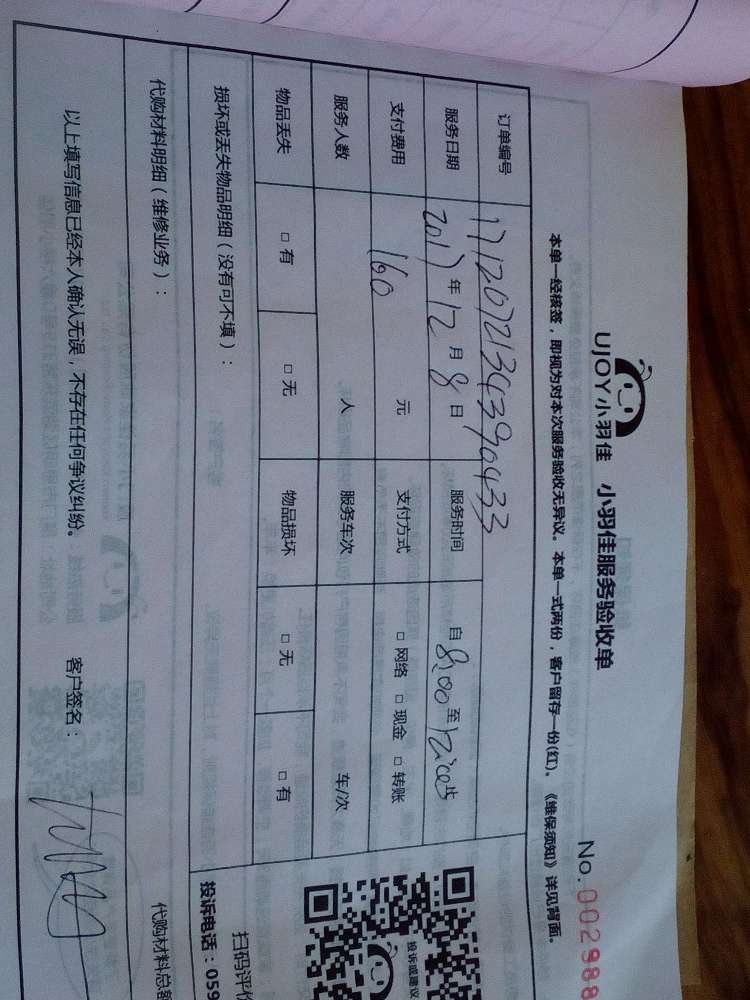 UJOY小羽佳 小羽佳服务验收单
No.002988
本单一经核签，即视为对本次服务验收无异议。本单一式两份，客户留存一份(红)。《维保须知》详见背面。
订单编号 17120721343990433
服务日期 2017年12月8日 服务时间 自8:00至12:00
支付费用 160 元 支付方式 □网络 □现金 □转账
服务人数 人 服务车次 车/次
物品丢失 □有 □无 物品损坏 □无 □有
损坏或丢失物品明细（没有可不填）：
代购材料明细（维修业务）： 代购材料总
以上填写信息已经本人确认无误，不存在任何争议纠纷。 客户签名：
投诉或建议
扫码评价
投诉电话：059